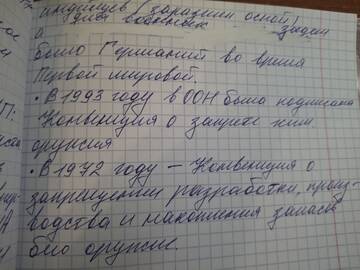 индейцев (заразили оспой)
и для военных
было Германий во время
Первой мировой.
• В 1993 году в ООН была подписана
Конвенция о запрете хим
оружия
• В 1972 году – Конвенция о
запрещении разработки, произ-
водства и накопления запасов
био оружие.